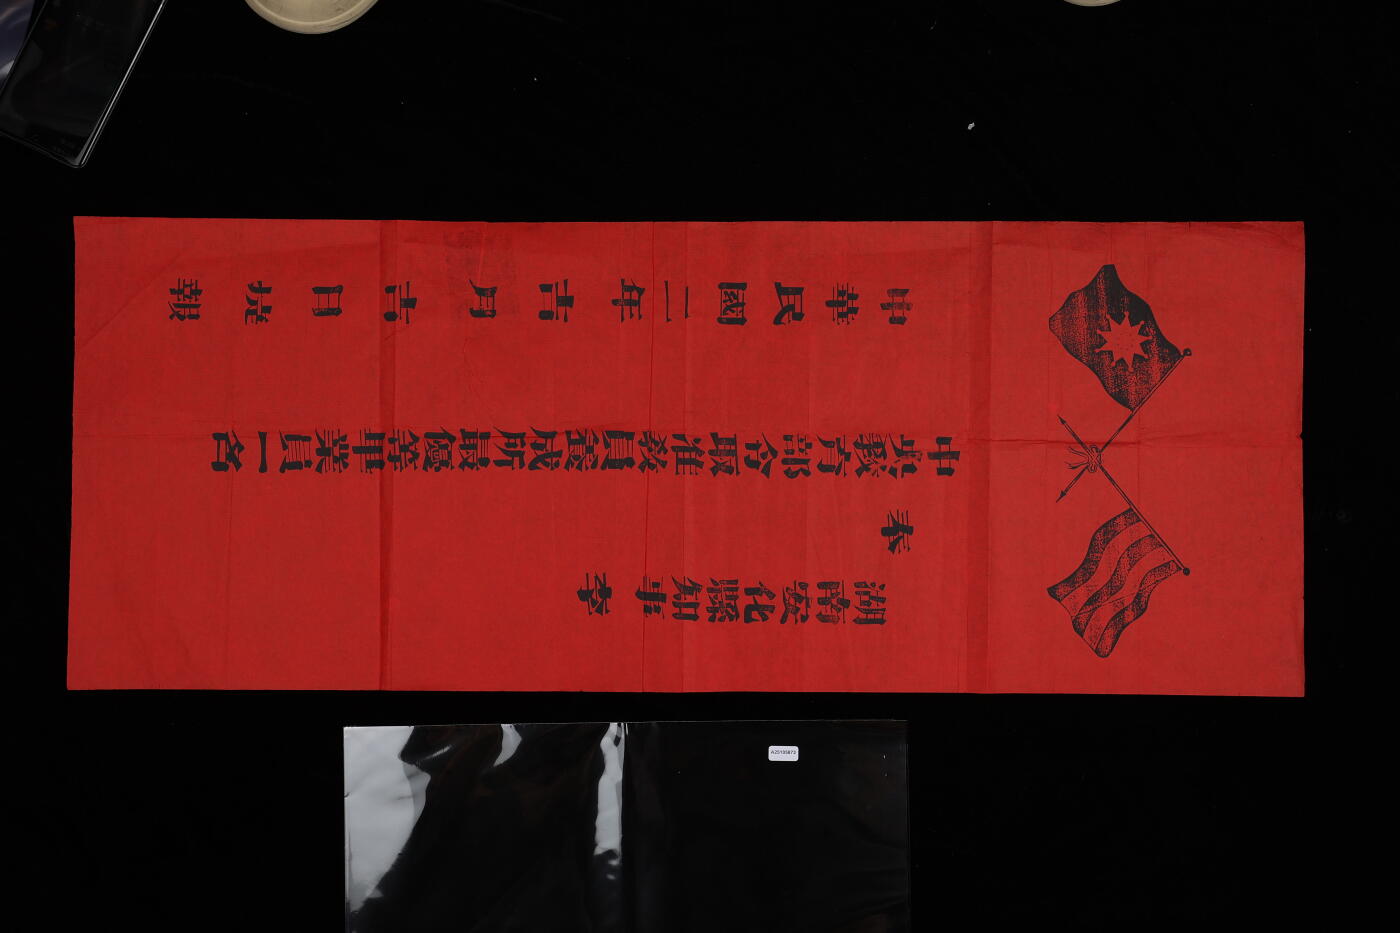 湖南安化縣知事李
奉
中央教育部令取准教員養成所最優等畢業員一名
中華民國二年吉月吉日捷報
A25105873